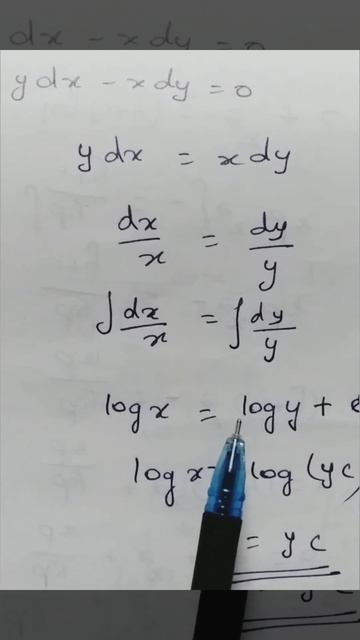 dx - x dy = 0
y dx - x dy = 0
y dx = x dy
dx/x = dy/y
∫ dx/x = ∫ dy/y
log x = log y +
log x = log (yc)
= yc